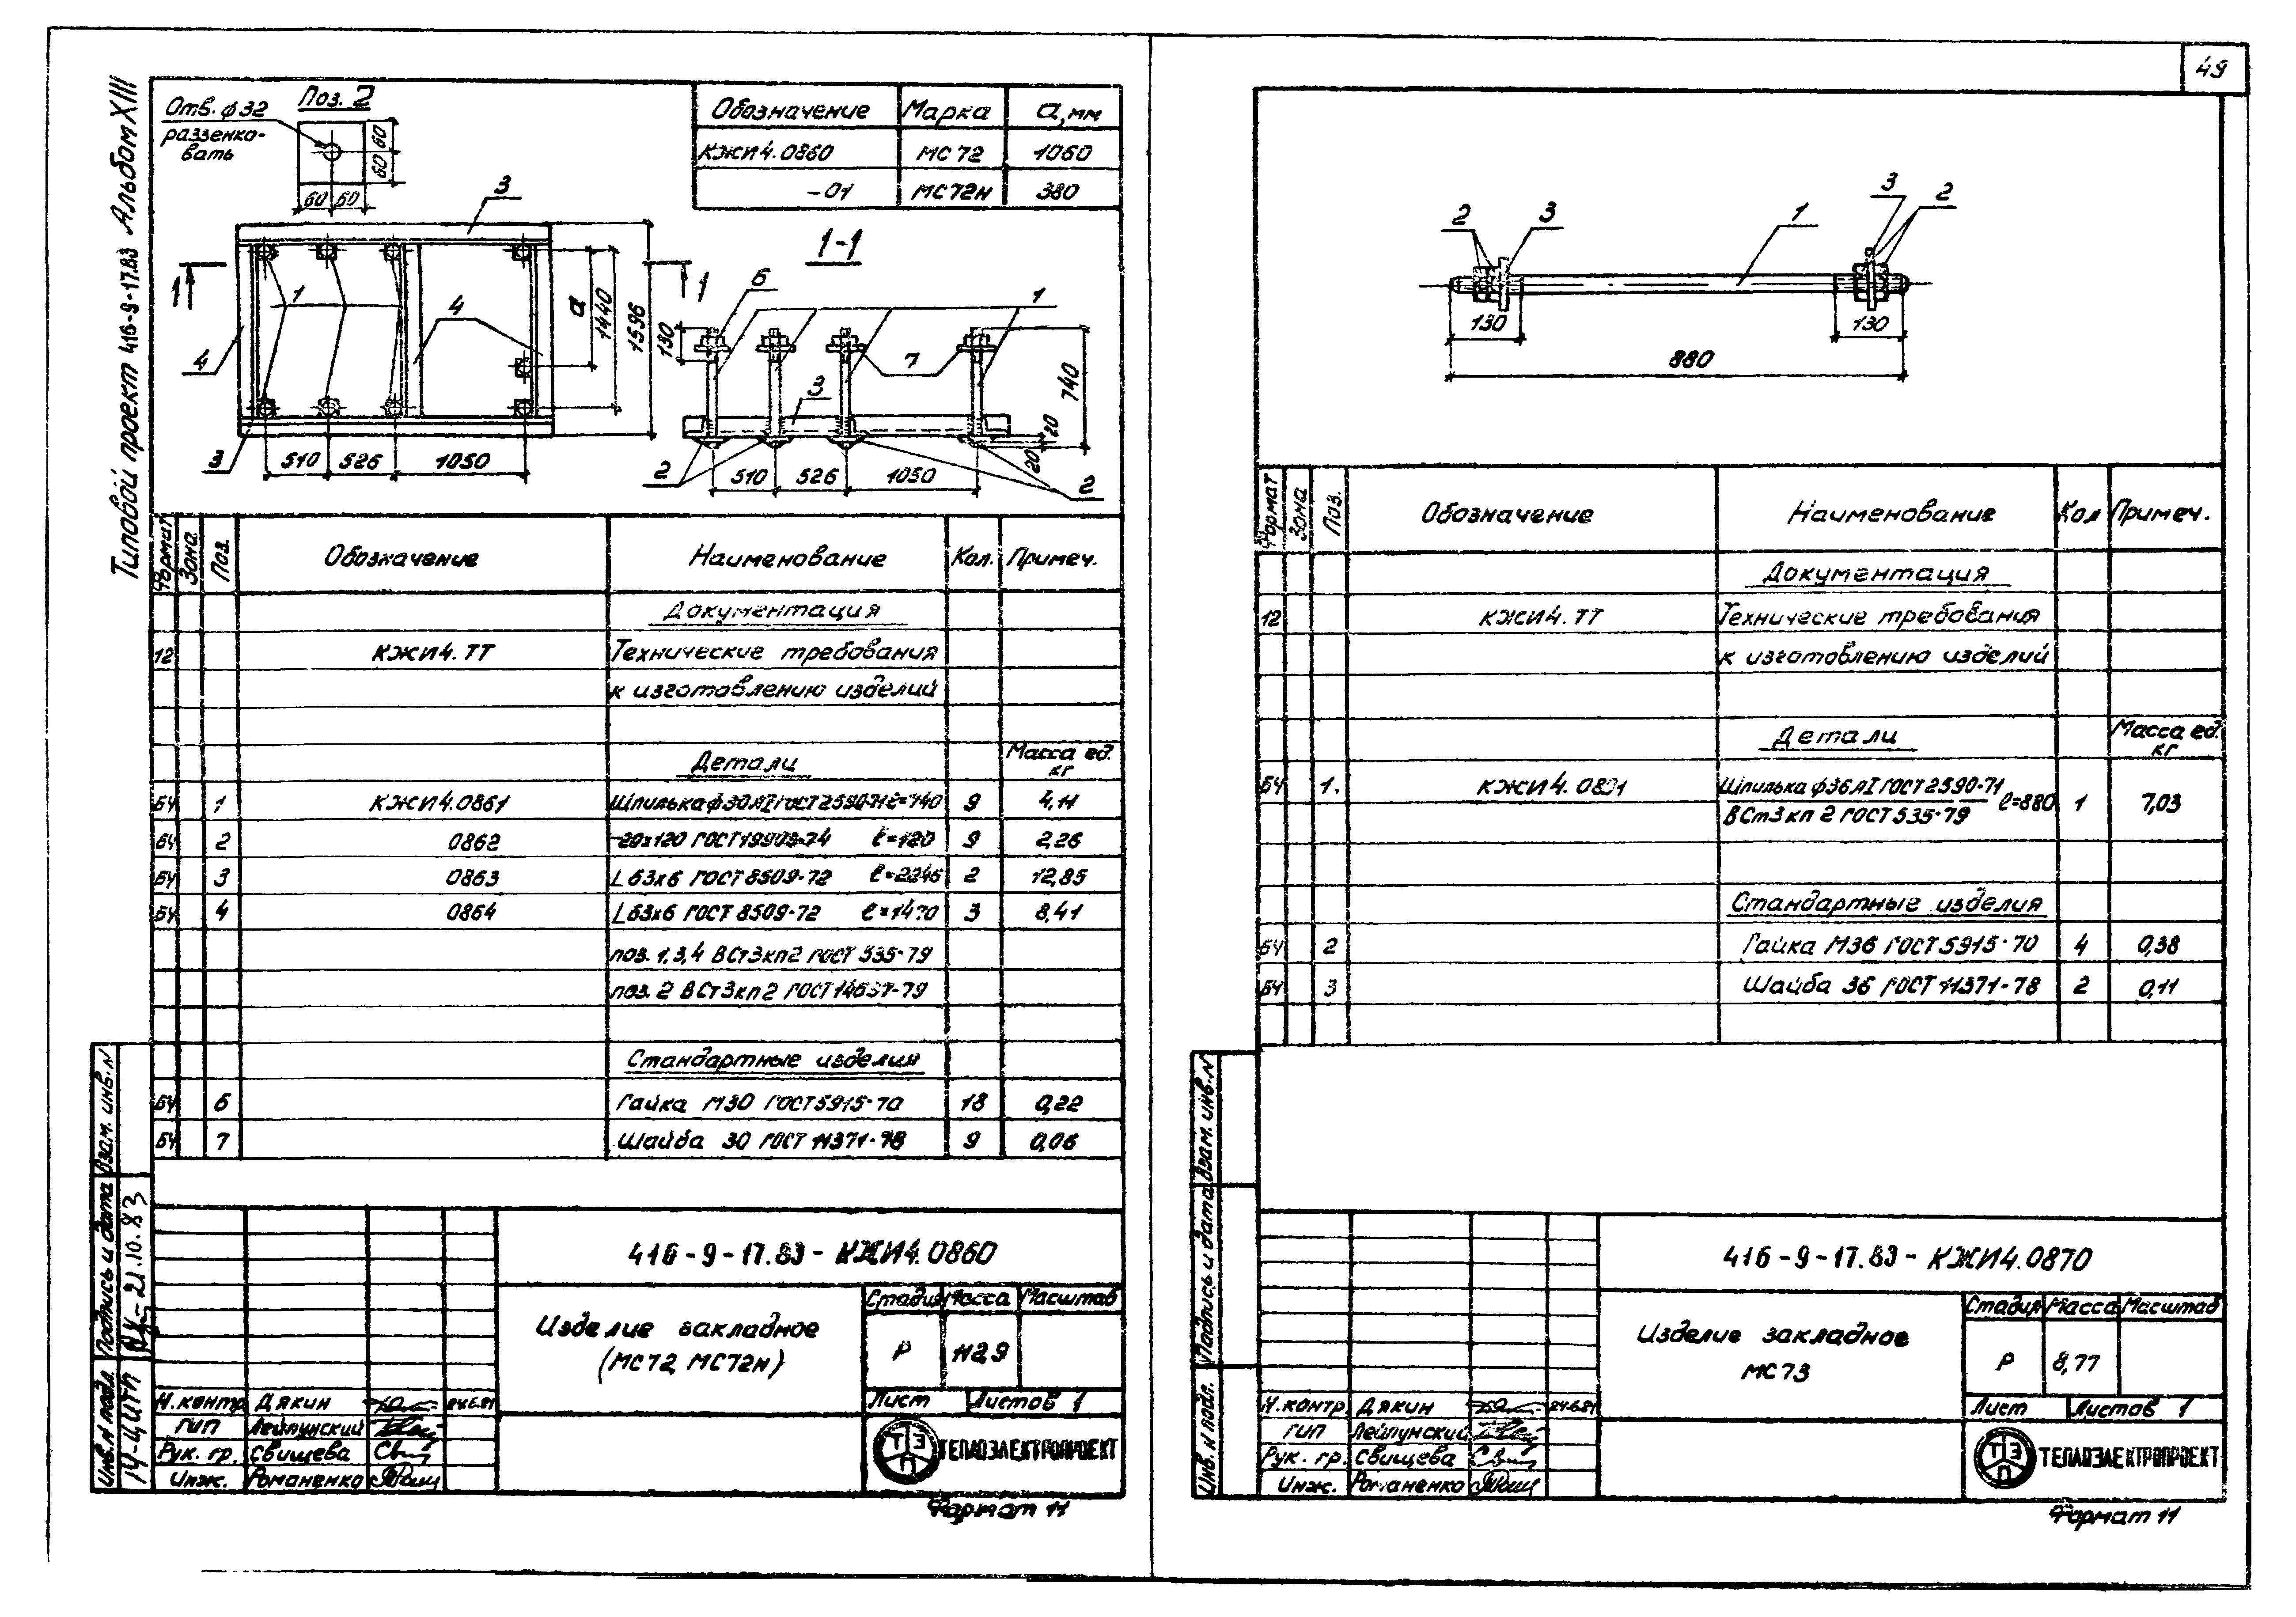 49
Типовой проект 416-9-17.83 Альбом XIII
Поз. 2
Отв. ф32
раззенко-
вать
60 60
60 60
Обозначение Марка a, мм
КЖИ4.0860 МС72 1060
-01 МС72Н 380
1-1
3
1 1
1 4 a 1440 1596
4
3
510 526 1050
6 1
130 7 740
3
20
20
2 510 526 1050 2
Формат Зона Поз. Обозначение Наименование Кол. Примеч.
Документация
12 КЖИ4.ТТ Технические требования
к изготовлению изделий
Детали Масса ед. кг
БЧ 1 КЖИ4.0861 Шпилька ф30АI ГОСТ2590-71 ℓ=740 9 4,11
БЧ 2 0862 -20х120 ГОСТ19903-74 ℓ=120 9 2,26
БЧ 3 0863 L 63х6 ГОСТ 8509-72 ℓ=2246 2 12,85
БЧ 4 0864 L 63х6 ГОСТ 8509-72 ℓ=1470 3 8,41
поз. 1,3,4 ВСт3кп2 ГОСТ 535-79
поз. 2 ВСт3кп2 ГОСТ 14637-79
Стандартные изделия
БЧ 6 Гайка М30 ГОСТ5915-70 18 0,22
БЧ 7 Шайба 30 ГОСТ 11371-78 9 0,06
416-9-17.83-КЖИ4.0860
Изделие закладное
(МС72, МС72Н)
Стадия Масса Масштаб
Р 112,9
Лист Листов 1
Н.контр Дякин 24.6.81
ГИП Лейпунский
Рук. гр. Свищева
Инж. Романенко
ТЭП ТЕПЛОЭЛЕКТРОПРОЕКТ
Формат 11
Инв.N подл. Подпись и дата Взам. инв.N
21.10.83
2 3 1 3 2
130 130
880
Формат Зона Поз. Обозначение Наименование Кол Примеч.
Документация
12 КЖИ4.ТТ Технические требования
к изготовлению изделий
Детали Масса ед. кг
БЧ 1. КЖИ4.0871 Шпилька ф36АI ГОСТ2590-71 ℓ=880 1 7,03
ВСт3кп2 ГОСТ535-79
Стандартные изделия
БЧ 2 Гайка М36 ГОСТ5915-70 4 0,38
БЧ 3 Шайба 36 ГОСТ 11371-78 2 0,11
416-9-17.83-КЖИ4.0870
Изделие закладное
МС73
Стадия Масса Масштаб
Р 8,77
Лист Листов 1
Н.контр. Дякин 24.6.81
ГИП Лейпунский
Рук. гр. Свищева
Инж. Романенко
ТЭП ТЕПЛОЭЛЕКТРОПРОЕКТ
Формат 11
Инв.N подл. Подпись и дата Взам. инв.N